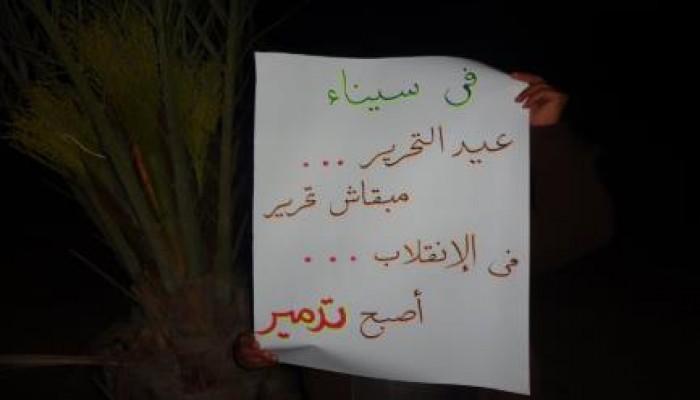 فى سيناء
عيد التحرير ...
مبقاش تحرير
فى الإنقلاب ...
أصبح تدمير